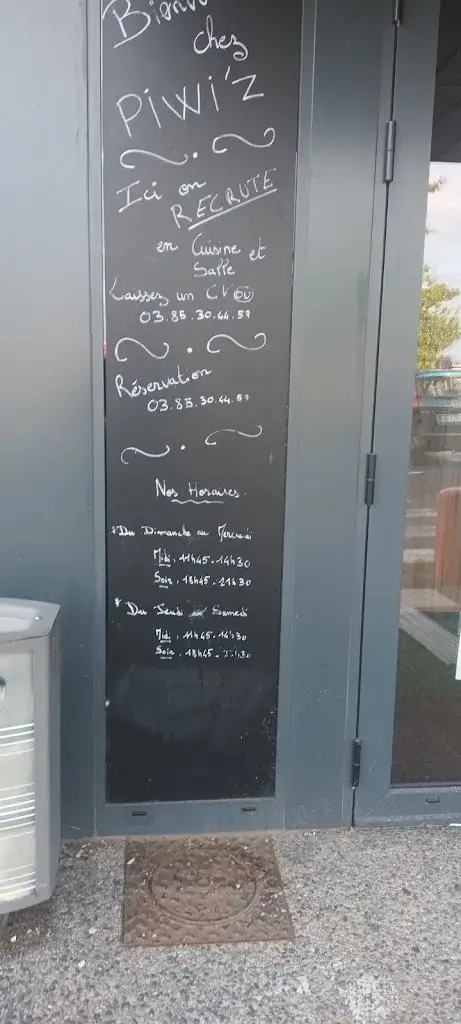 chez
Piwi'z
Ici on
RECRUTE
en Cuisine et
Salle
Laissez un CV OU
03.85.30.44.57
Réservation
03.85.30.44.57
Nos Horaires.
* Du Dimanche au Mercredi
Midi. 11h45-14h30
Soir. 18h45-21h30
* Du Jeudi au Samedi
Midi. 11h45-14h30
Soir. 18h45-